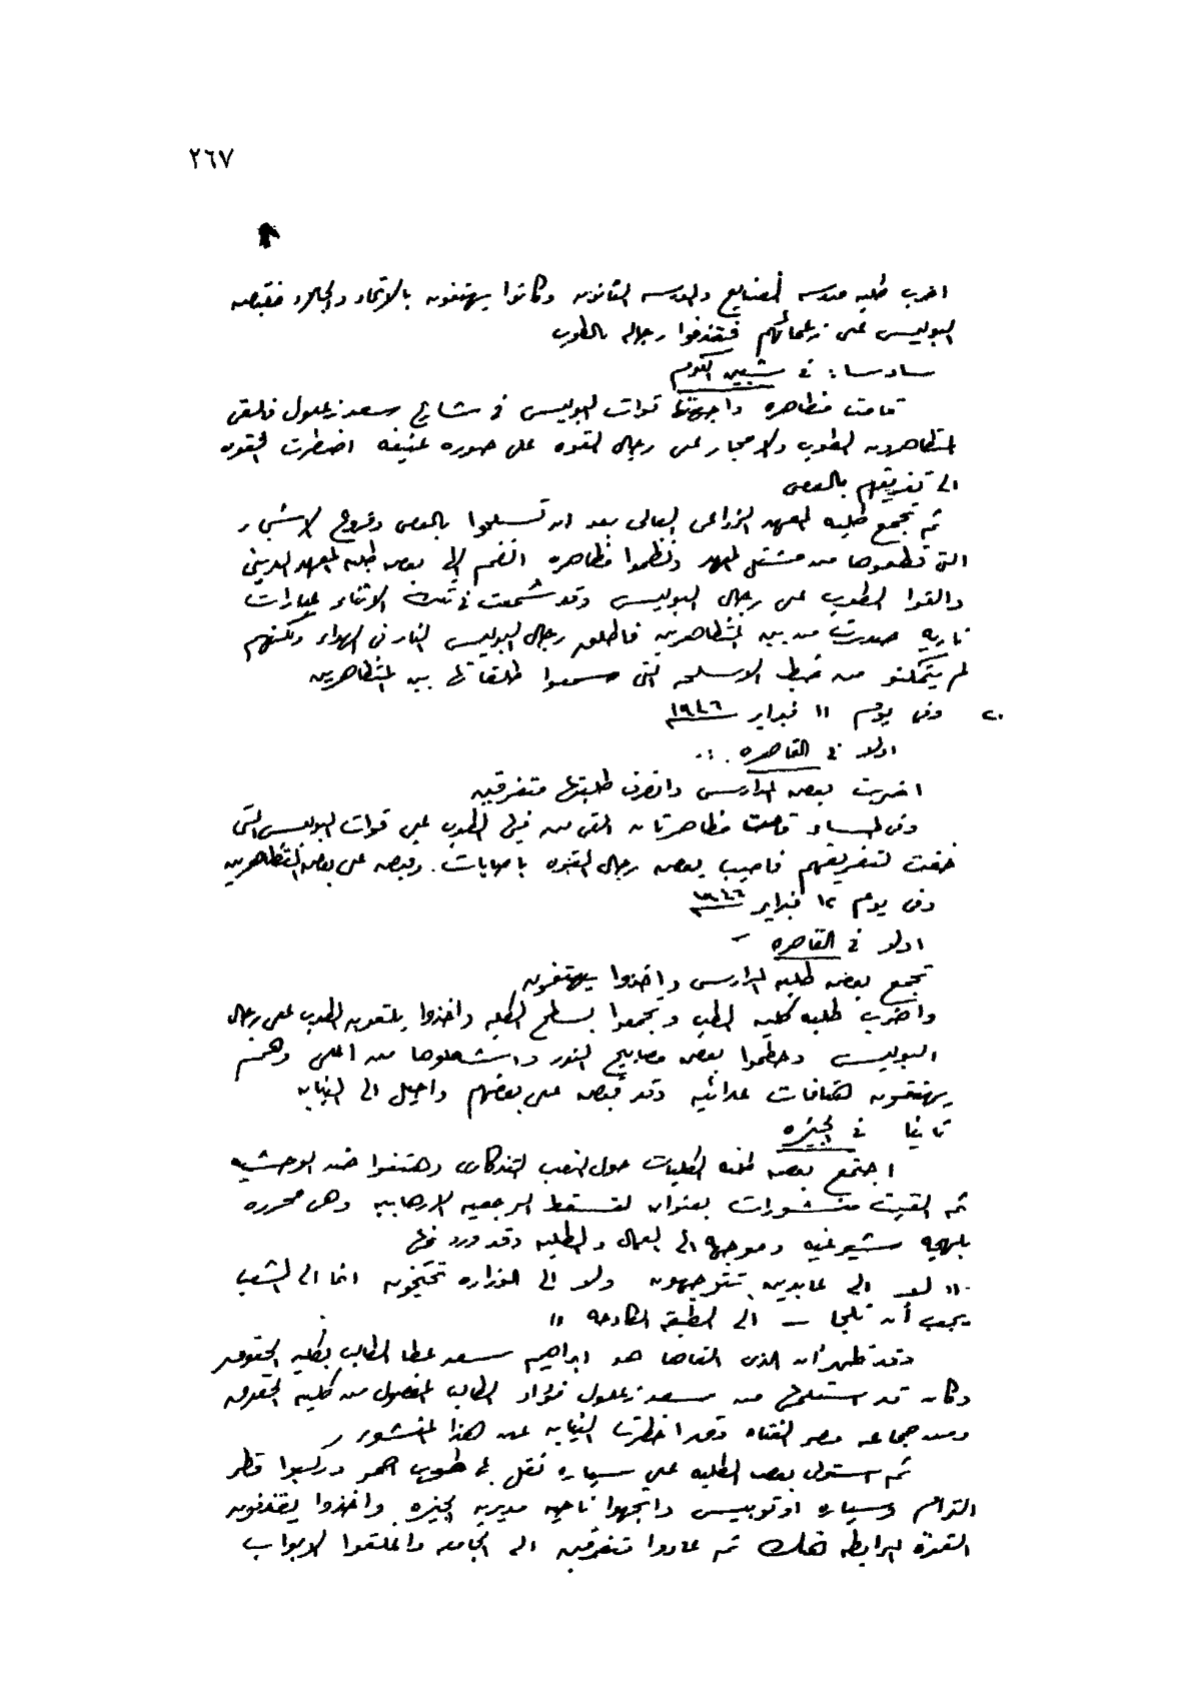 ٢٦٧
اضرب طلبه مدرسه الصنايع والمدرسه الثانويه وكانوا يهتفون بالاتحاد والجلاء فقبض
البوليس على زعمائهم فقذفوا رجاله بالطوب
سادسا : فى شبين الكوم
قامت مظاهره واجهتها قوات البوليس فى شارع سعد زغلول فالقى
المتظاهرون الطوب والاحجار على رجال القوه على صوره عنيفه اضطرت القوه
الى تفريقهم بالعصى
ثم تجمع طلبه المعهد الزراعى العالى بعد ان تسلحوا بالعصى وفروع الاشجار
التى قطعوها من مشتل المعهد ونظموا مظاهره انضم اليها بعض طلبه المعهد الدينى
والقوا الطوب على رجال البوليس وقد سُمعت فى تلك الاثناء عيارات
ناريه صدرت من بين المتظاهرين فاطلق رجال البوليس النار فى الهواء ولكنهم
لم يتمكنوا من ضبط الاسلحه التى سمعوا طلقاتها بين المتظاهرين
٢٠ وفى يوم ١١ فبراير ١٩٤٦
اولا فى القاهره :
اضربت بعض المدارس وانصرف طلبتها متفرقين
وفى المساء قامت مظاهرتان القى من فيها الطوب على قوات البوليس التى
خفت لتفريقهم فاصيب بعض رجال القوه باصابات . وقبض على بعض المتظاهرين
وفى يوم ١٢ فبراير ١٩٤٦
اولا فى القاهره –
تجمع بعض طلبه المدارس واخذوا يهتفون
واضرب طلبه كليه الطب وتجمعوا بسطح الكليه واخذوا يلقون الطوب على رجال
البوليس وحطموا بعض مصابيح النور واشعلوها من اعلى وهم
يهتفون هتافات عدائيه وقد قبض على بعضهم واحيل الى النيابه
ثانيا فى الجيزه
اجتمع بعض طلبه الكليات حول النصب التذكارى وهتفوا ضد الوحشيه
ثم القيت منشورات بعنوان لتسقط الرجعيه الارهابيه وهى محرره
بلهجه شيوعيه وموجهه الى العمال والطلبه وقد ورد فيها
" لا الى عابدين تتوجهون ولا الى الوزاره تحتجون انما الى الشعب
يجب أن نلجا – الى الطبقه الكادحه "
وقد ظهر أن الذى القاها هو ابراهيم سعد عطا الطالب بكليه الحقوق
وكان قد استلمها من سعد زغلول فؤاد الطالب المفصول من كليه الحقوق
ومن جماعه مصر الفتاه وقد اخطرت النيابه عن هذا المنشور
ثم استولى بعض الطلبه على سياره نقل بها طوب احمر وركبوا قطر
الترام وسياره اوتوبيس واتجهوا ناحيه مديريه الجيزه واخذوا يقذفون
القوه المرابطه هناك ثم عادوا متفرقين الى الجامعه واغلقوا الابواب